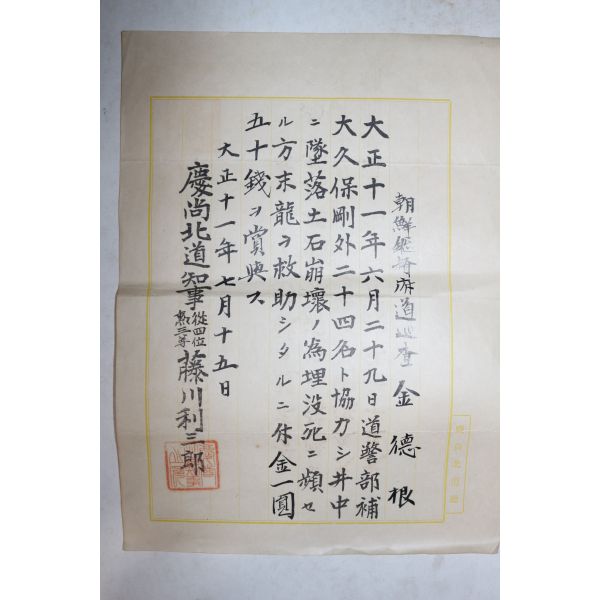 朝鮮總督府道巡査 金德根
大正十一年六月二十九日道警部補
大久保剛外二十四名ト協力シ井中
ニ墜落土石崩壞ノ為埋没死ニ頻セ
ル方末龍ヲ救助シタルニ付金一圓
五十錢ヲ賞與ス
大正十一年七月十五日
慶尚北道知事 從四位勲三等 藤川利三郎
慶尚北道廳